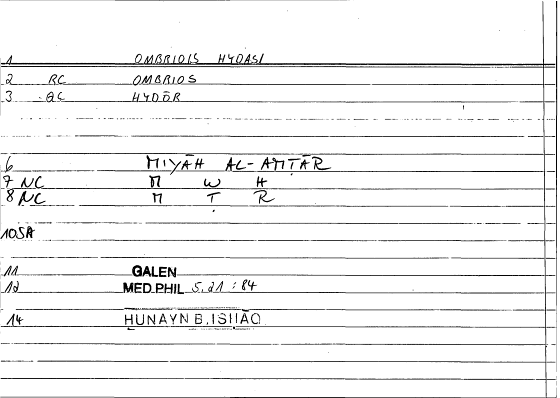 1 OMBRIOIS HYDASI
2 RC OMBRIOS
3 QC HYDŌR
6 MIYĀH AL-AMṬĀR
7 NC M W H
8 NC M Ṭ R
10 SA
11 GALEN
12 MED.PHIL 5.21 : 84
14 ḤUNAYN B. ISḤĀQ